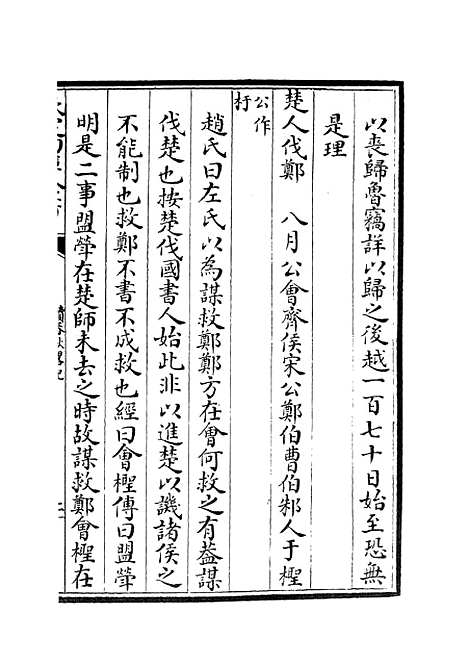 以喪歸魯竊詳以歸之後越一百七十日始至恐無
是理
楚人伐鄭　八月公會齊侯宋公鄭伯曹伯邾人于檉
公作
朾
趙氏曰左氏以為謀救鄭鄭方在會何救之有葢謀
伐楚也按楚伐國書人始此非以進楚以譏諸侯之
不能制也救鄭不書不成救也經曰會檉傳曰盟犖
明是二事盟犖在楚師未去之時故謀救鄭會檉在
讀春秋畧記